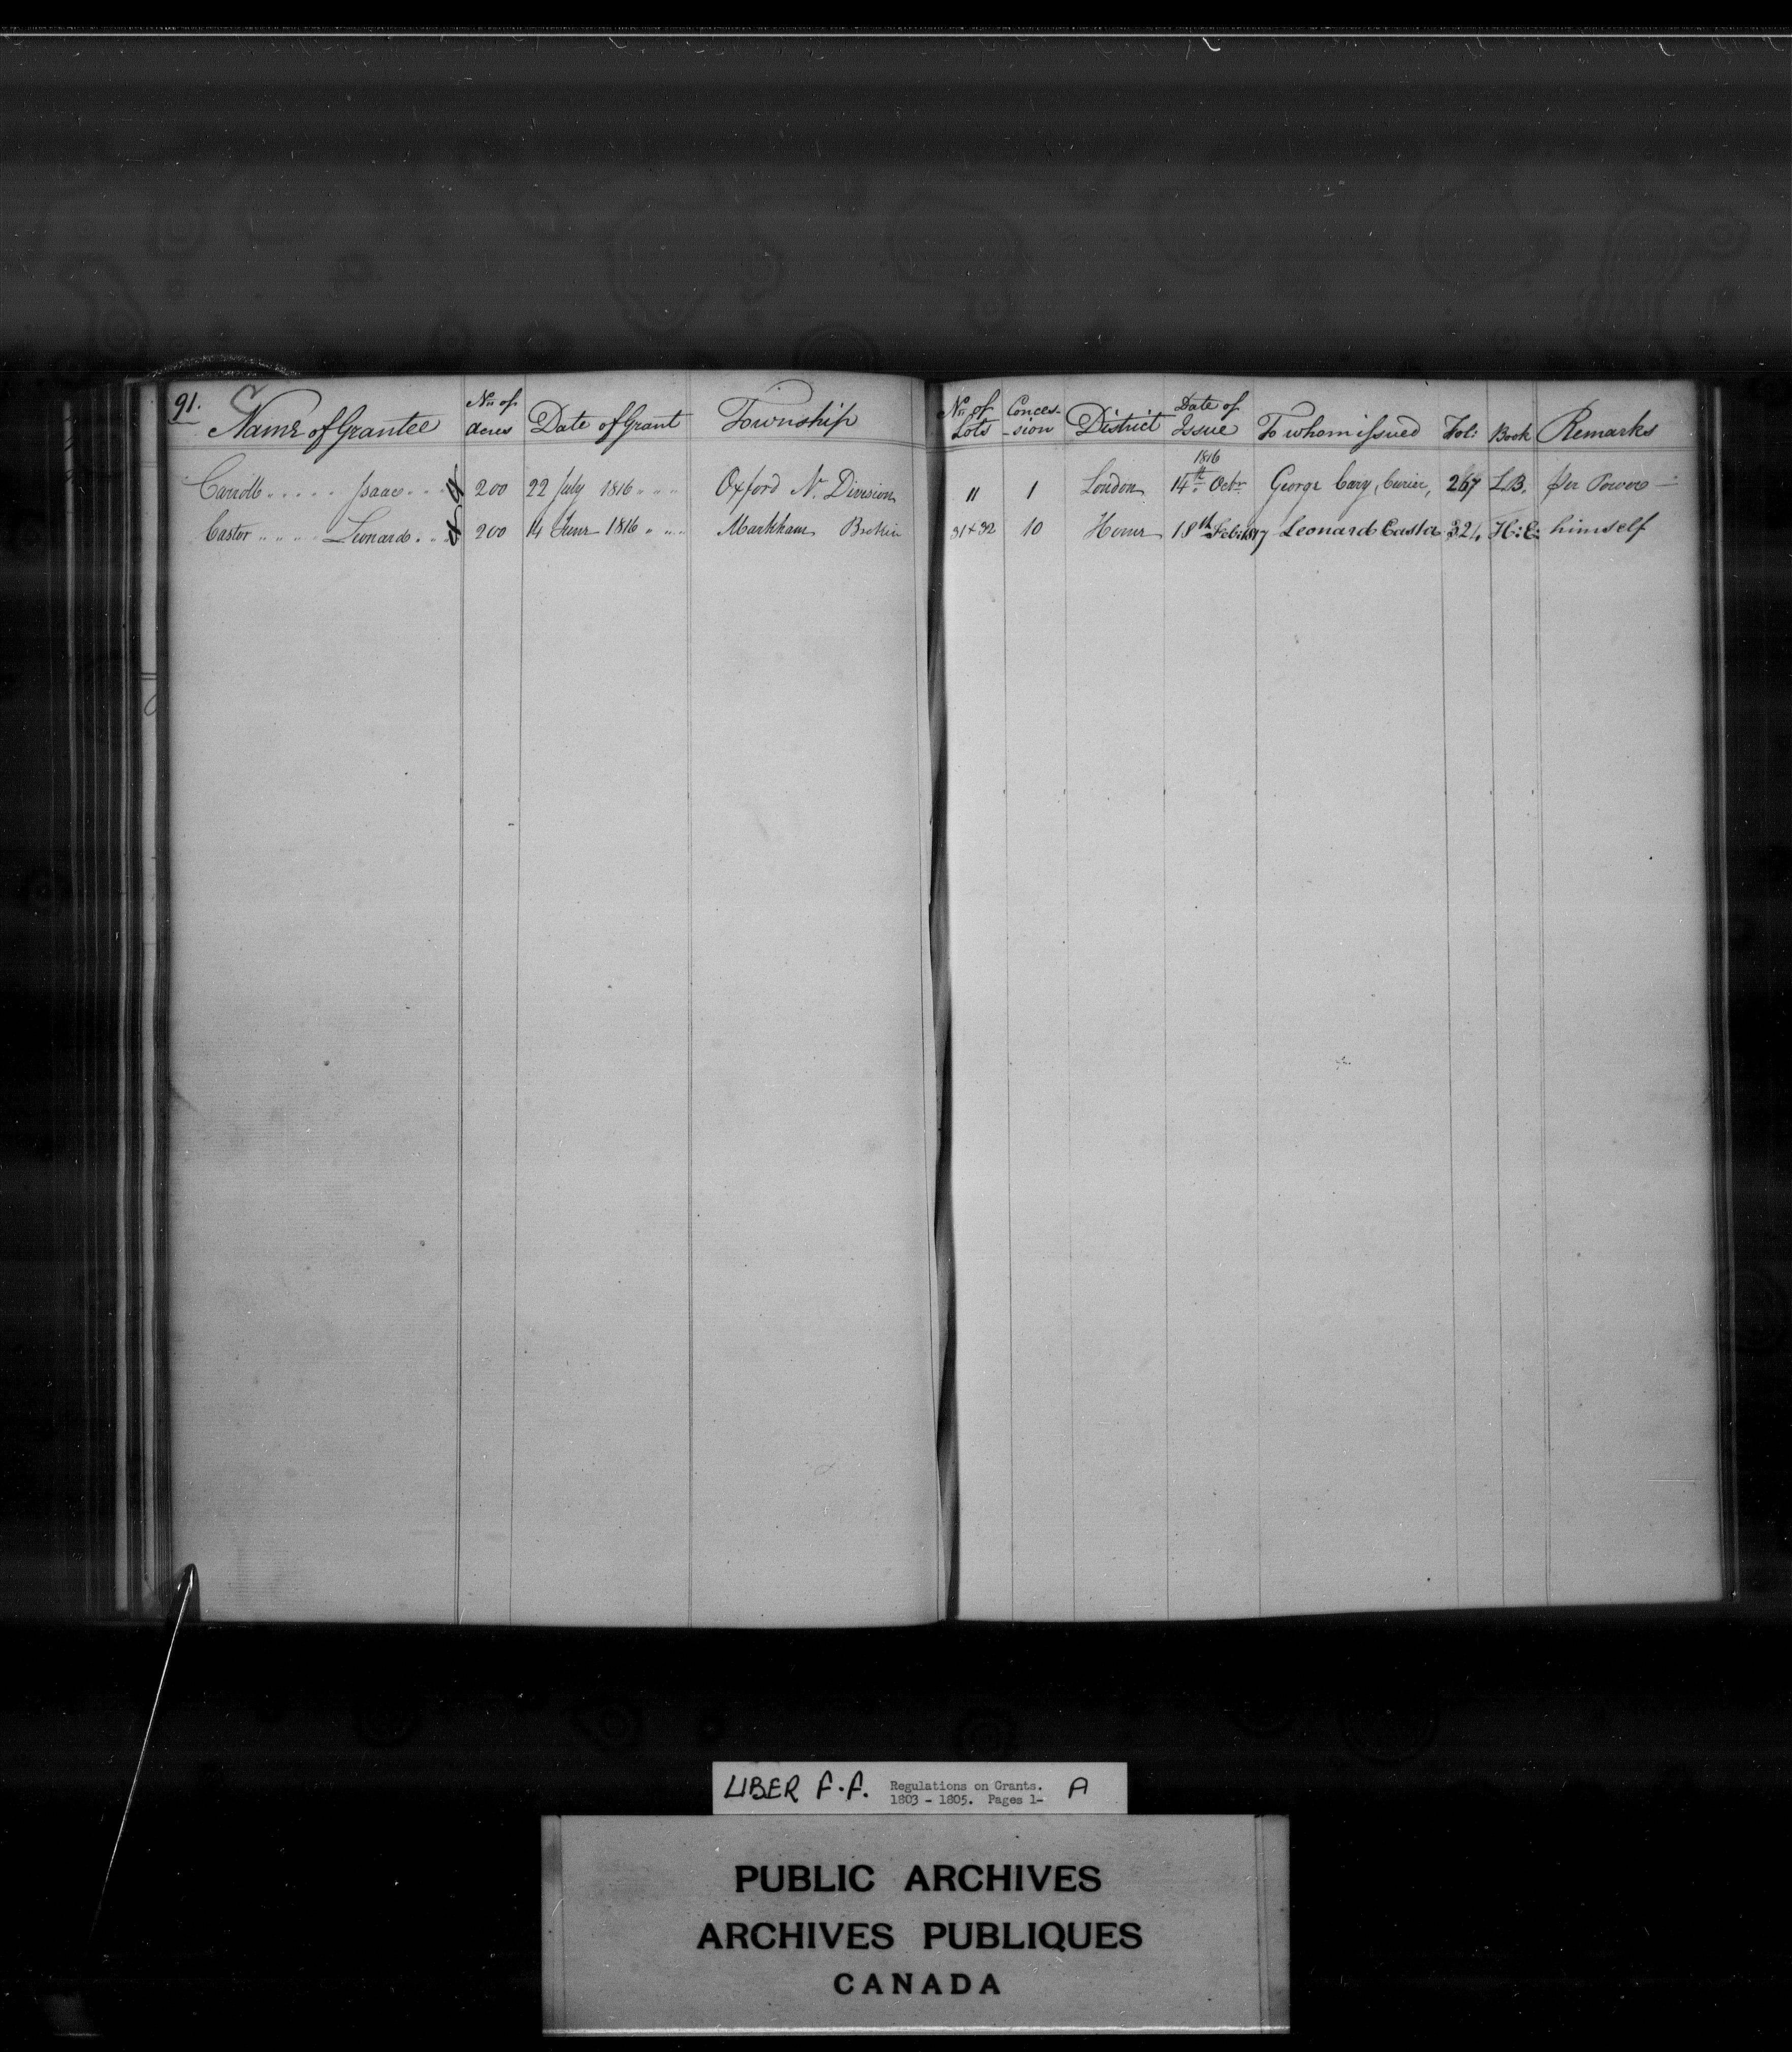 91. C
Name of Grantee | No of acres | Date of Grant | Township | No of Lots | Conces-sion | District | Date of Issue | To whom issued | Fol: | Book | Remarks
Carroll ..... Isaac ... | 200 | 22 July 1816 ... | Oxford N. Division | 11 | 1 | London | 1816 14th Octr | George Cary, | 267 | L.B. | per Power
Castor ..... Leonard ... | 200 | 14 June 1816 ... | Markham | 31 + 32 | 10 | Home | 18th Feb: 1817 | Leonard Castor | 324 | H:E: | himself
LIBER F.F. Regulations on Grants. A
1803 - 1805. Pages 1-
PUBLIC ARCHIVES
ARCHIVES PUBLIQUES
CANADA